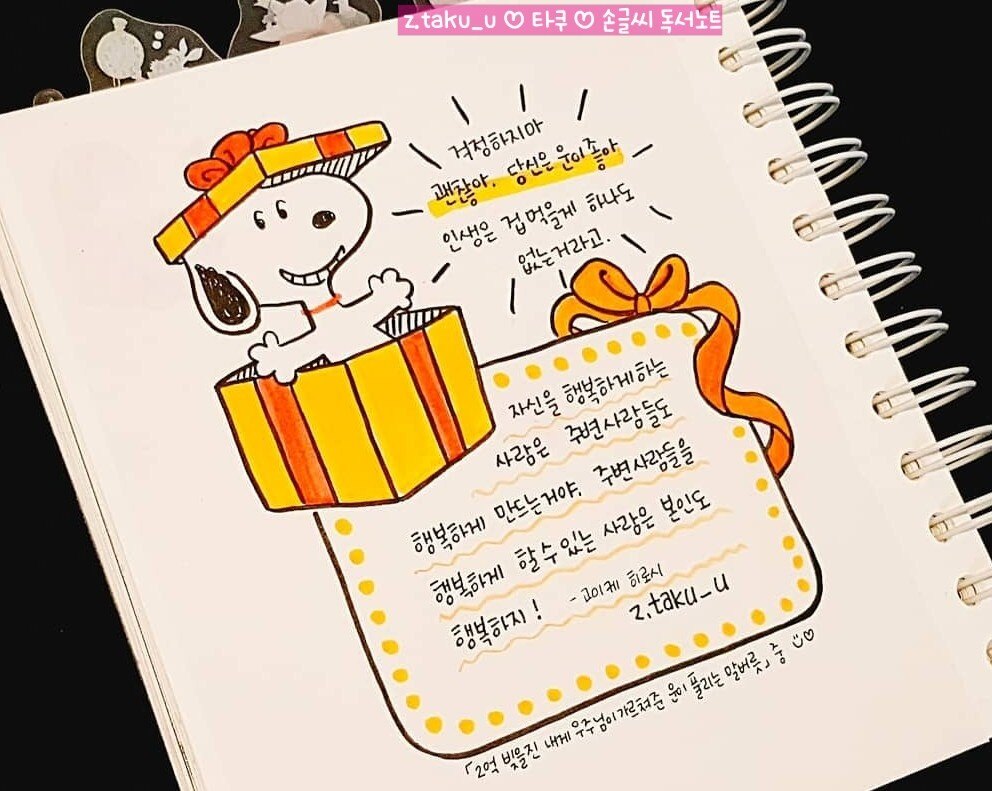 z.taku_u ♡ 타쿠 ♡ 손글씨 독서노트
걱정하지마
괜찮아. 당신은 운이 좋아
인생은 겁먹을게 하나도
없는거라고.
자신을 행복하게 하는
사람은 주변사람들도
행복하게 만드는거야. 주변사람들을
행복하게 할 수 있는 사람은 본인도
행복하지! - 고이케 히로시
z.taku_u
「2억 빚을진 내게 우주님이가르쳐준 운이 풀리는 말버릇」 중 ☺♡